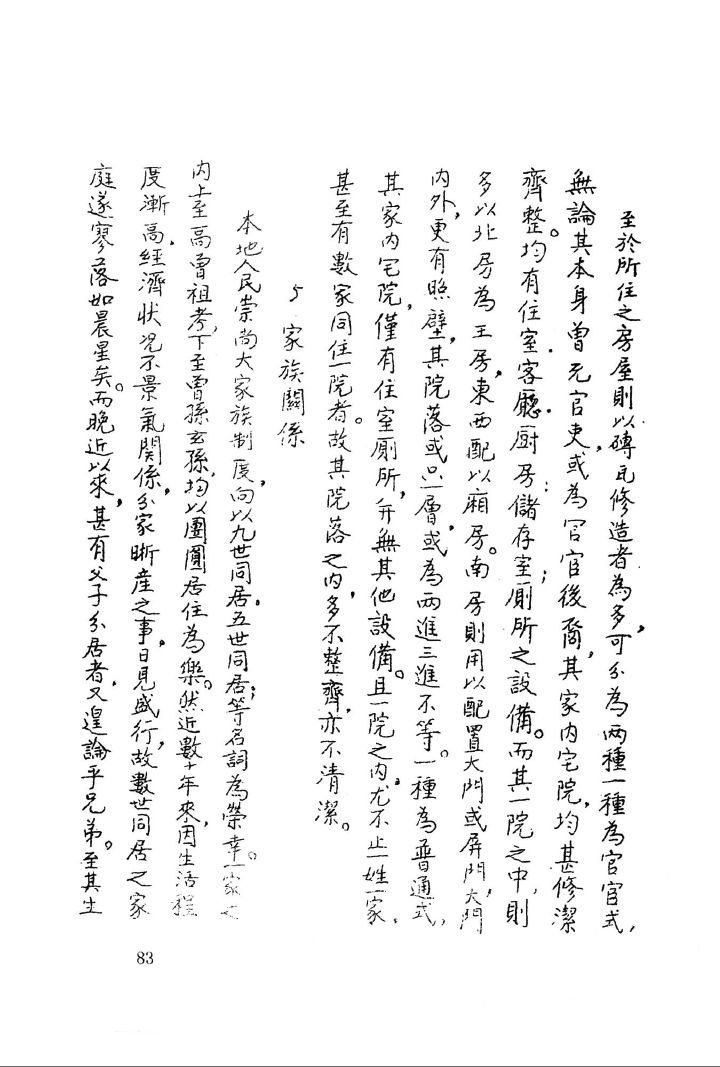 至於所住之房屋則以磚瓦修造者為多，可分為兩種一種為官宦式，
無論其本身曾充官吏，或為官宦後裔，其家內宅院，均甚修潔
齊整。均有住室．客廳．厨房；儲存室；厠所之設備。而其一院之中，則
多以北房為王房，東西配以廂房。南房則用以配置大門或屏門，大門
內外，更有照壁，其院落或只一層，或為兩進三進不等。一種為普通式，
其家內宅院，僅有住室厠所，并無其他設備。且一院之內，尤不止一姓一家，
甚至有數家同住一院者。故其院落之內，多不整齊，亦不清潔。
5 家族關係
本地人民崇尚大家族制度，向以九世同居，五世同居；等名詞為榮幸。一家之
內上至高曾祖考，下至曾孫玄孫，均以團圓居住為樂。然近數十年來，因生活程
度漸高，經濟狀况不景氣関係，分家晰産之事，日見盛行，故數世同居之家
庭遂寥落如晨星矣。而晚近以來，甚有父子分居者，又遑論乎兄弟。至其生
83